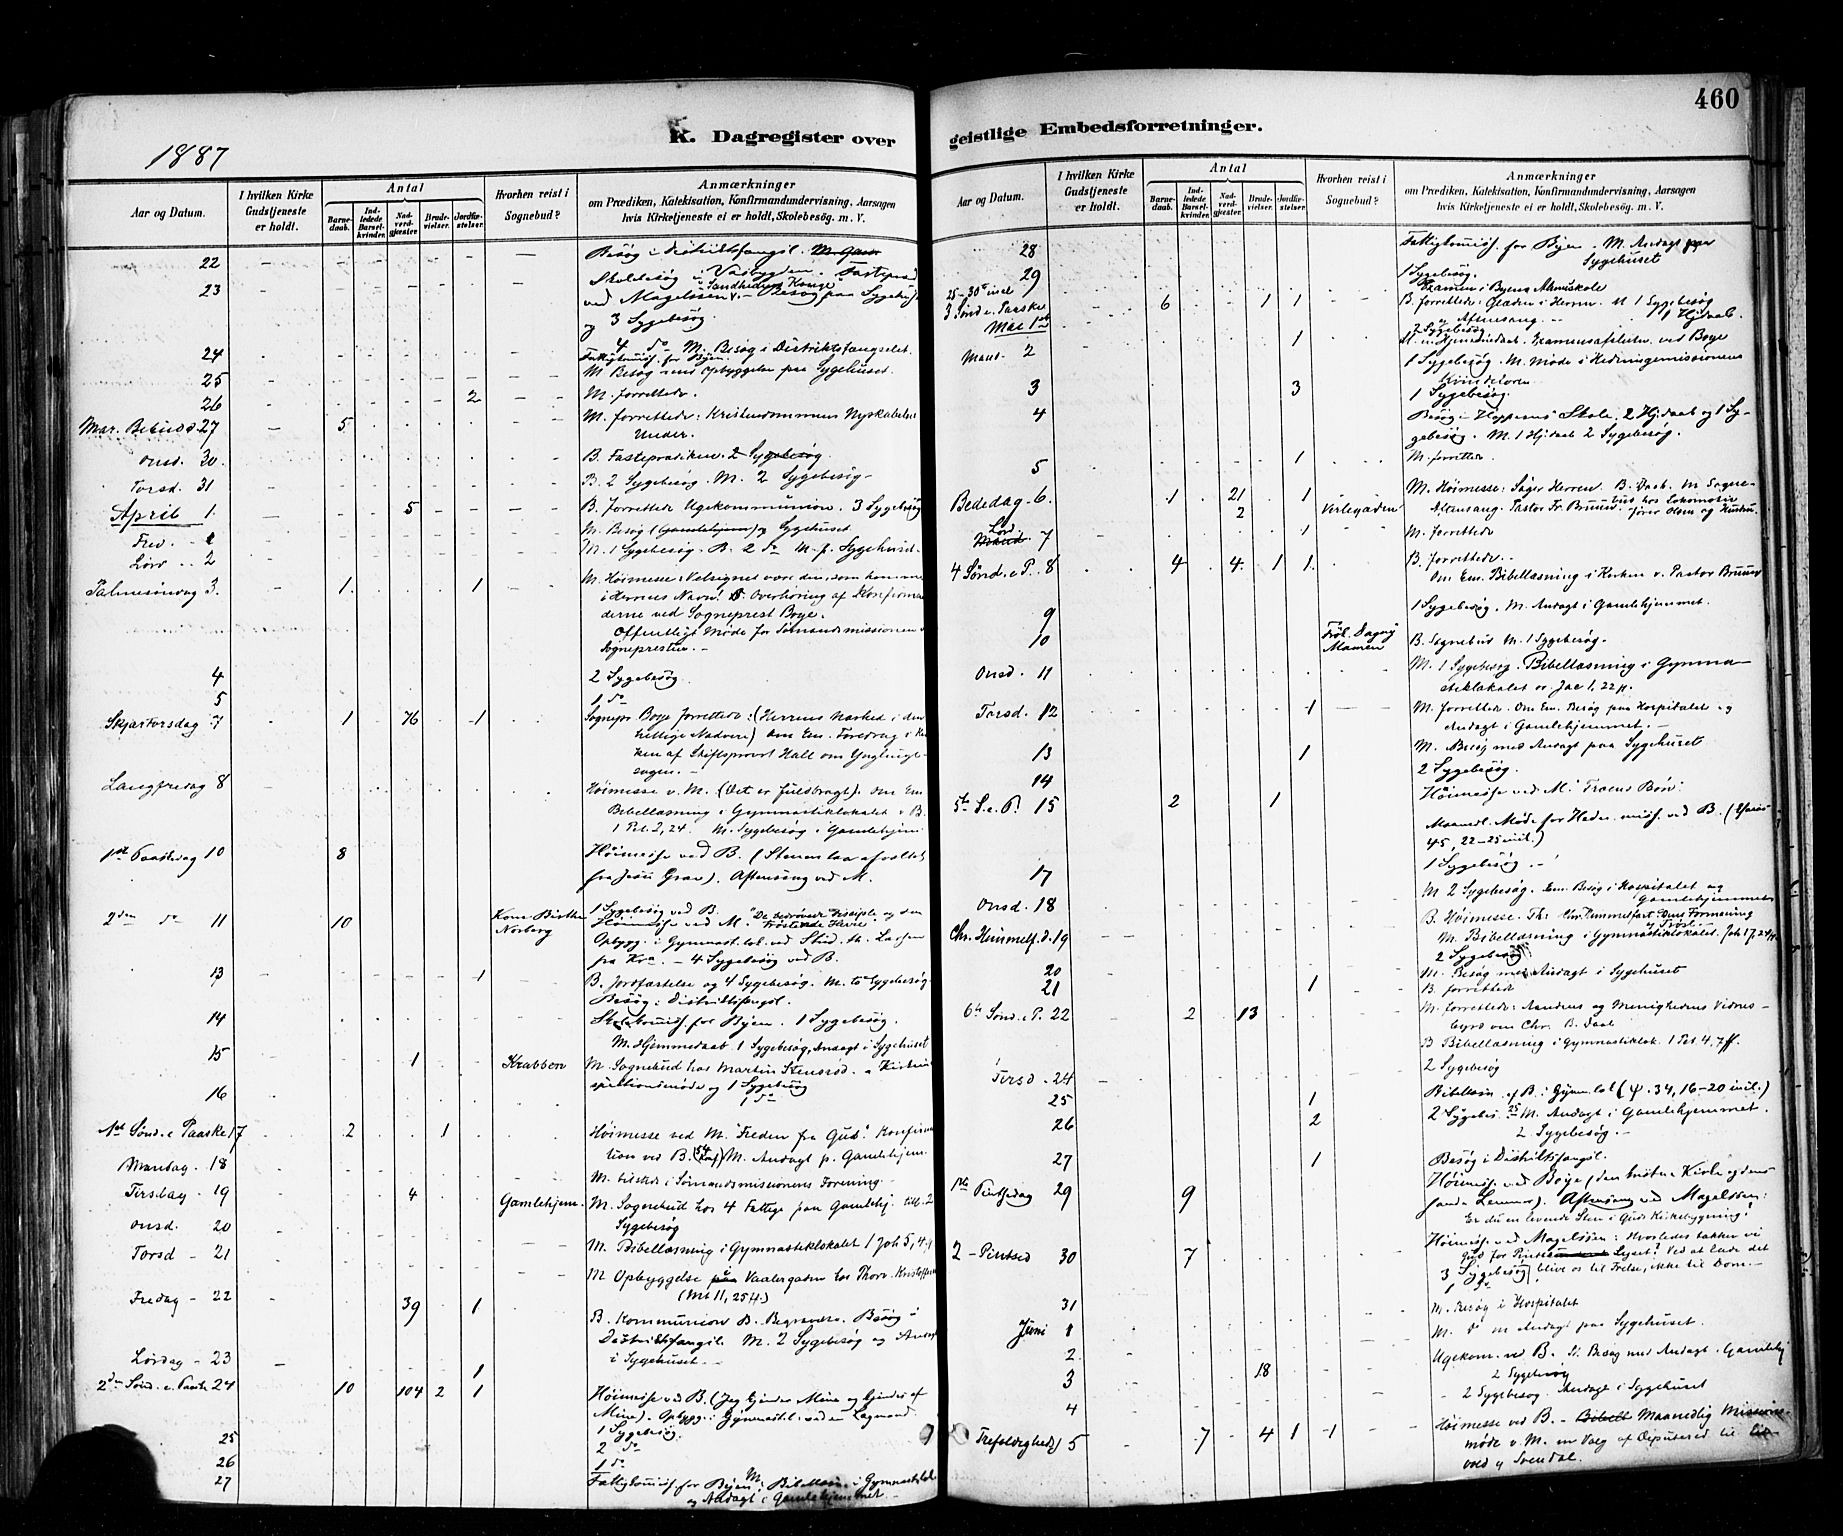 460
K. Dagregister over geistlige Embedsforretninger.
1887
Aar og Datum.
I hvilken Kirke Gudstjeneste er holdt.
Antal
Barnedaab.
Indledede Barselkvinder.
Nadverdgjæster
Brudevielser.
Jordfæstelser.
Hvorhen reist i Sognebud?
Anmærkninger
om Prædiken, Katekisation, Konfirmandundervisning, Aarsagen
hvis Kirketjeneste ei er holdt, Skolebesøg. m. V.
22 Besøg i Distriktsfængsl.
23 Skolebesøg i
ved Magelssen. Besøg paa Sygehus
og 3 Sygebesøg.
24 4 do M. Besøg i Distriktsfængselet.
Fattigkomiss. for Byen.
25 M Besøg med Opbyggelse paa Sygehuset.
26 2 M. forrettede.
Mar. Bebud. 27 5 M. forrettede: Kristendommens Nyskabelses
Under.
Onsd. 30. B. Fasteprædiken. 2 Sygebesøg.
Torsd. 31 B. 2 Sygebesøg. M. 2 Sygebesøg
April 1. 5 B. forrettede Ugekommunion. 3 Sygebesøg
Fred. 1 M. Besøg (Gamlehjem) og Sygehuset.
Lørd 2 M. 1 Sygebesøg. B. 2 do M. f. Sygehuset.
Palmesöndag 3. 1. 1 M. Høimesse: Velsignet være den, som kommer
i Herrens Navn! B. Overhøring af Konfirman
derne ved Sogneprest Boye.
Offentligt Møde for Sømandsmissionen v
Sognepresten.
4 2 Sygebesøg.
5 1 do
Skjærtorsdag 7 1 76 1 Sognepr. Boye forrettede: (Herrens Nærhed i den
hellige Nadvere) Om Em. Foredrag i Kir
ken af Stiftsprovst Hall om Ynglinge
sagen.
Langfredag 8 Høimesse v. M. (Det er fuldbragt). Om Em.
Bibellæsning i Gymnastiklokalet v B.
1 Pet. 2, 24. M. Sygebesøg i Gamlehjem
1ste Paaskedag 10 8 Høimesse ved B. (Stenen laa afvæltet
fra Jesu Grav). Aftensang ved M.
2den do 11 10 Norberg 1 Sygebesøg ved B.
Høimesse ved M. "De bedrøvede Disciple og den
Trøstende Herre
Opbygg. i Gymnast.lok. ved Stud. th. Larsen
fra Kra. 4 Sygebesøg ved B.
13 1 B. Jordfæstelse og 4 Sygebesøg. M. to Sygebesøg
Besøg i Distriktsfængsl.
14 Skolekomiss. for Byen. 1 Sygebesøg.
M. Hjemmedaab 1 Sygebesøg, Andagt i Sygehuset
15 1 Krabben M. Sognebud hos Martin Stensrød.
16 spektionsmøde og 1 Sygebesøg
1 do
1st Sønd. e Paaske 17 2 1 Høimesse ved M. "Freden fra Gud". Konfirma
tion ved B. M. Andagt p. Gamlehjem.
Mandag. 18 M. tilstede i Sømandsmissionens Forening.
Tirsdag 19 4 Gamlehjem. M. Sognebud hos 4 Fattige paa Gamlehj. till. 2
Sygebesøg
Onsd. 20
Torsd 21 M. Bibellæsning i Gymnastiklokalet 1 Joh 5, 4
M Opbyggelse i Vaalergaden hos Thorv. Kristoffersen
(Mt 11, 25 ff.)
Fredag 22 39 1 B. Kommunion B. Begravelse. Besøg i
Distriktsfængsl. M. 2 Sygebesøg og Andagt
i Sygehuset.
Lørdag 23 1
2den Sönd. e. Paaske 24 10 104 2 1 Høimesse ved B. (Jeg kjender Mine og kjendes af
Mine). Opbygg. i Gymnastl. ved en Lægmand.
25 1 Sygebesøg.
26 2 do
27 1 do
Fattigkomiss. for Byen. M. Bibellæsn. i Gymnastiklok
og Andagt i Gamlehjemmet.
Aar og Datum.
I hvilken Kirke Gudstjeneste er holdt.
Antal
Barnedaab.
Indledede Barselkvinder.
Nadverdgjæster.
Brudevielser.
Jordfæstelser.
Hvorhen reist i Sognebud?
Anmærkninger
om Prædiken, Katekisation, Konfirmandundervisning, Aarsagen
hvis Kirketjeneste ei er holdt, Skolebesøg, m. V.
28 Fattigkomiss. for Byen. M. Andagt paa
Sygehuset
29 1 Sygebesøg.
25-30te incl Examen i Byens Almueskole
3 Sønd e. Paaske Mai 1ste 6 1 1 B. forrettede: Glæden i Herren. M 1 Sygebesøg
og Aftensang. 1 Hjdaab.
Mand. 2 1 2 Sygebesøg.
M. en Hjemmedaab. Examensafslutn. ved Boye
1 Sygebesøg. M. Møde i Hedningemissionens
Kvindeforen.
3 3 1 Sygebesøg.
4 Besøg i Skole. 2 Hjdaab og 1 Sy-
gebesøg. M. 1 Hjdaab 2 Sygebesøg.
5 1 M. forrettede
Bededag 6. 1 21 2 1 M. Høimesse: Søger Herren. B. Daab. M Sogne-
bud hos Lokomotiv
Aftensang. Pastor Fr. Bruun. fører Olsen og Hustru.
Lørd 7 1 M. forrettede
4 Sønd. e P. 8 4 4 1 1. B. forrettede.
Om Em. Bibellæsning i Kirken v. Pastor Bruun
9 1 Sygebesøg. M. Andagt i Gamlehjemmet.
10 Frøk. Dagny Mamen B. Sognebud M. 1 Sygebesøg.
Onsd. 11 M. 1 Sygebesøg. Bibellæsning i Gymna-
stiklokalet ov. Jac 1, 22 ff.
Torsd. 12 1 M. forrettede. Om Em. Besøg paa Hospitalet og
Andagt i Gamlehjemmet.
13 1 M. Besøg med Andagt paa Sygehuset
14 2 Sygebesøg.
5te S. e. P. 15 2 1 Høimesse ved M: Troens Bøn:
Maanedl. Møde for Heden. miss. ved B.
45, 22-25 incl.)
17 1 Sygebesøg.
Onsd. 18 M 2 Sygebesøg. Em. Besøg i Hospitalet og
Gamlehjemmet
Chr. Himmelf. d. 19 B. Høimesse. Th: Chr. Himmelfart
M. Bibellæsning i Gymnastiklokalet.
20 2 Sygebesøg
21 1 M. Besøg med Andagt i Sygehuset
B. forrettede
6te Sønd. e P. 22 2 13 M. forrettede: Aandens og Menighedens Vidnes-
byrd om Chr. B. Daab
B Bibellæsning i Gymnastiklok. 1 Pet. 4, 7 ff.
Tirsd. 24 2 Sygebesøg
25 1 Bibellæsn. af B. i Gymn.lok (ψ. 34, 16-20 incl.)
26 2 2 Sygebes. M. Andagt i Gamlehjemmet.
2 Sygebesøg.
27 1 Besøg i Distriktsfængsl.
1ste Pintsedag 29 9 Høimess. ved Boye (den kristne Kirke og dens
sande Lemmer). Aftensang ved Magelssen:
Er du en levende Sten i Guds Kirkebygning?
2 Pintsed 30 7 Høimess. ved Magelssen: Hvorledes takker vi
Gud for Lyset? Ved at lade det
3 Sygebesøg blive os til Frelse, ikke til Dom.
1 do
31 M. Besøg i Hospitalet
Juni 1 M. do m Andagt paa Sygehuset.
2 Ugekom. ved B. M. Besøg med Andagt. Gamlehj
3 18 2 Sygebesøg
4 2 Sygebesøg. Andagt i Sygehuset
Trefoldighed 5 7 4 1 1 Høimesse ved B. Maanedlig Missions-
møde v. M. en Valg af Deputered til
vold og Svendal.